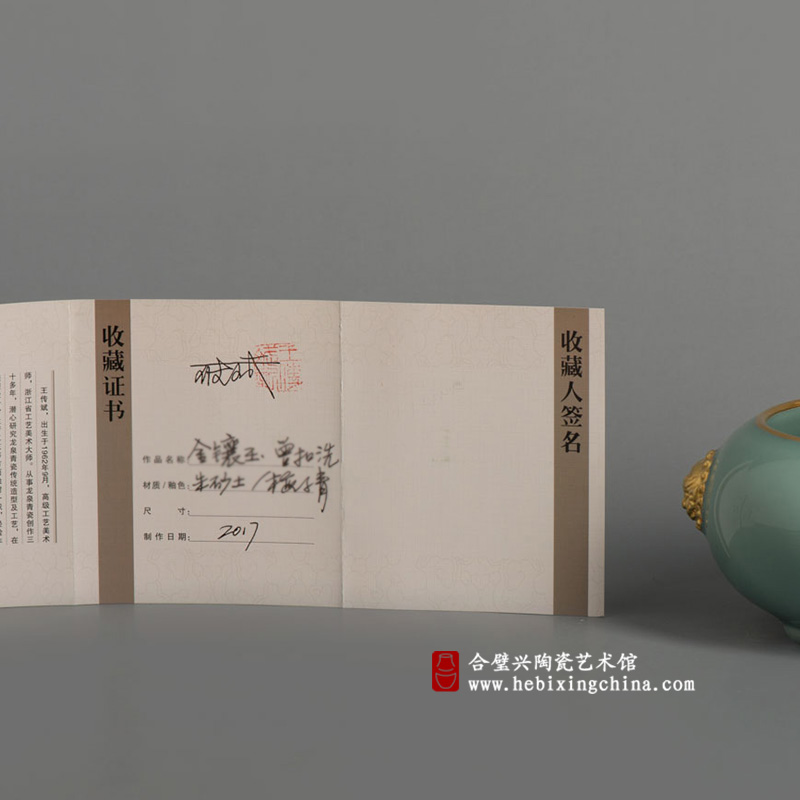 王传斌，出生于1962年9月，高级工艺美术
师，浙江省工艺美术大师。从事龙泉青瓷创作三
十多年，潜心研究龙泉青瓷传统造型及工艺，在
收藏证书
作品名称：金镶玉 曾扣洗
材质/釉色：朱砂土/梅子青
尺 寸：
制作日期：2017
收藏人签名
合璧兴陶瓷艺术馆
www.hebixingchina.com